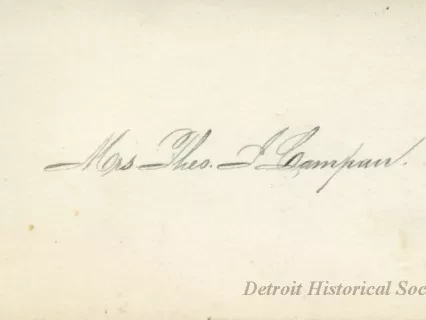 Mrs. Theo. J. Campau.
Detroit Historical Soc